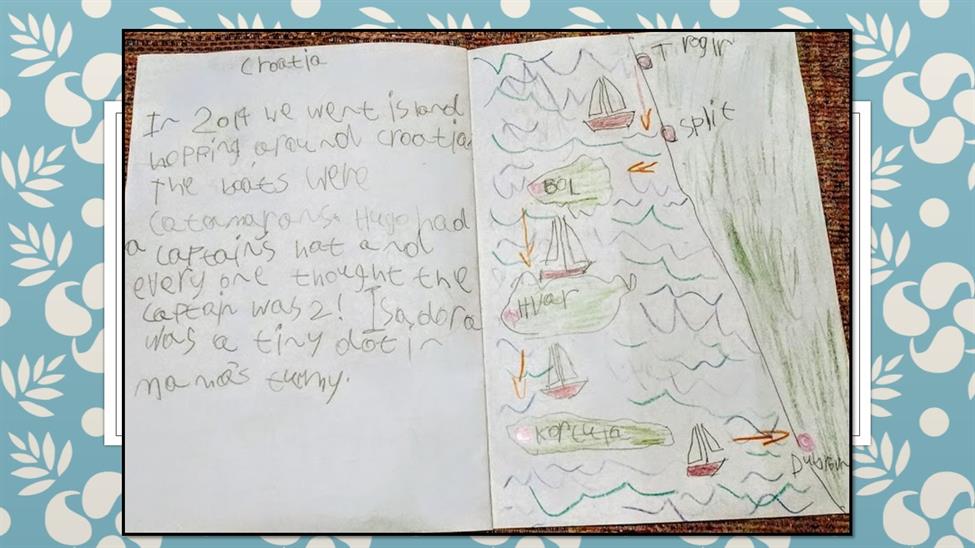 Croatia
In 2014 we went island
hopping around croatia
The boats were
catamarons. Hugo had
a captains hat and
every one thought the
captan was 2! Isadora
was a tiny dot in
mamas tummy.
Trogir
Split
BOL
HVar
Korcula